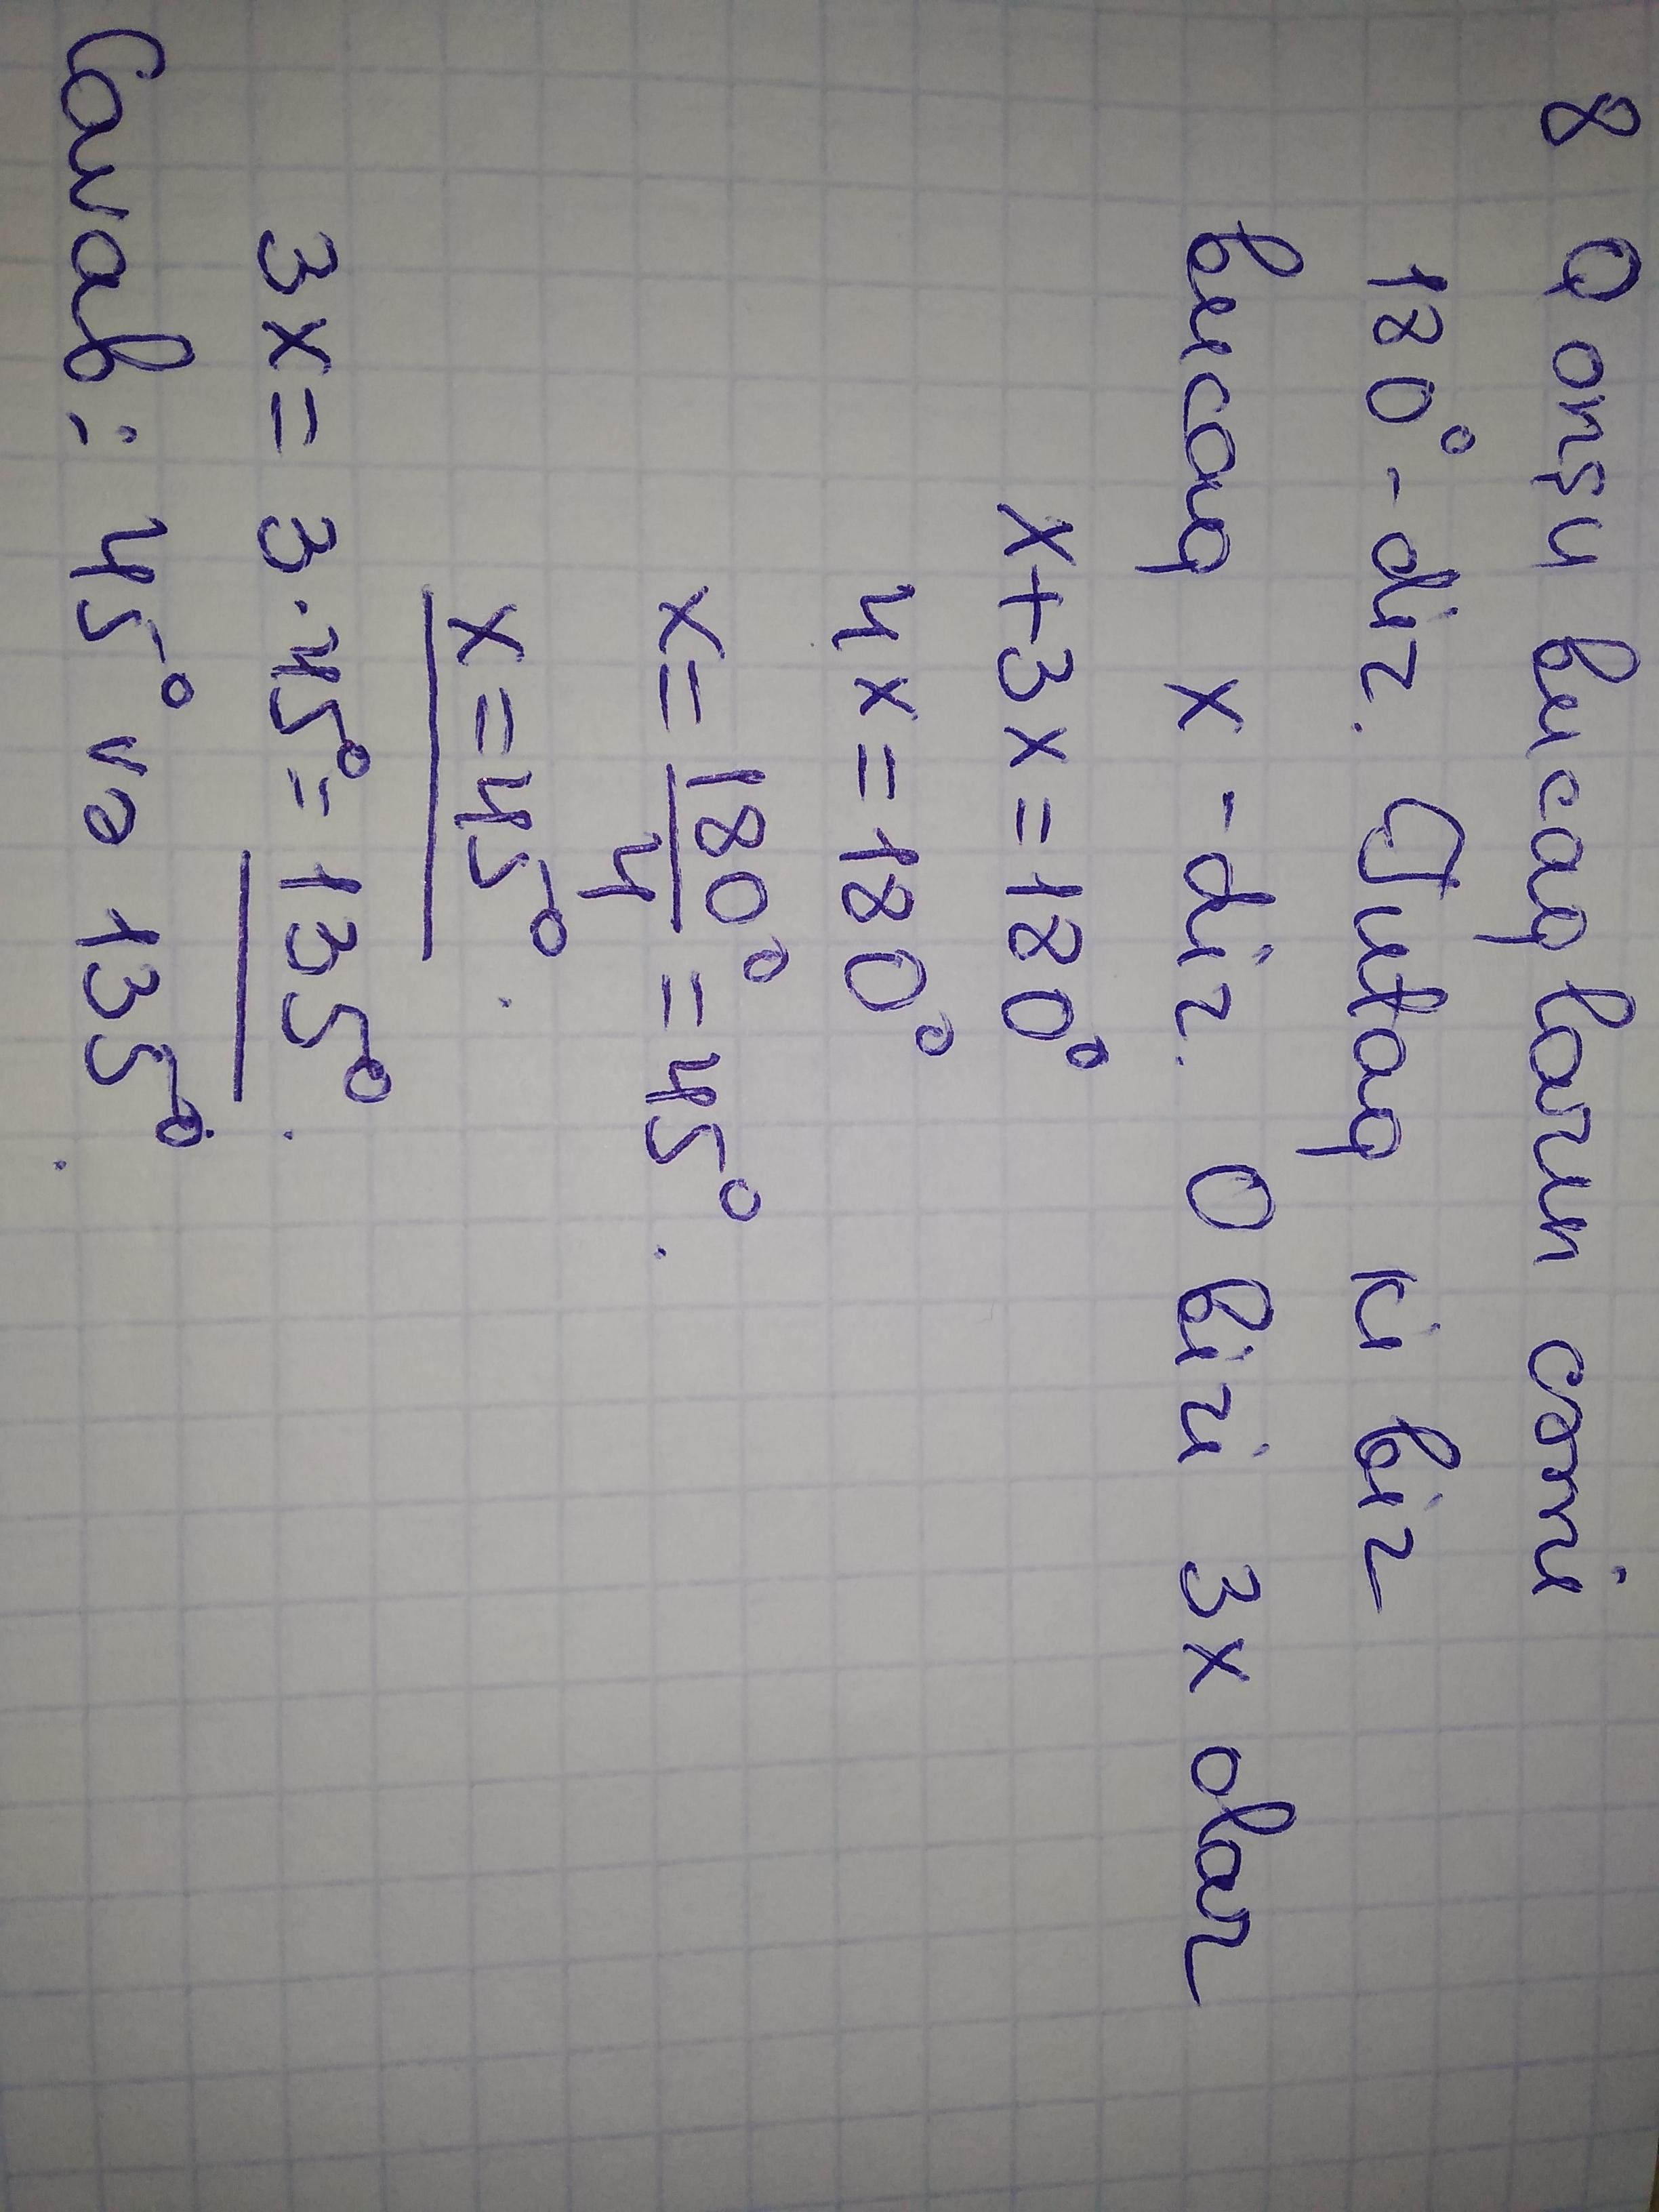 8 Qonşu bucaqların cəmi
180°-dir. Tutaq ki bir
bucaq x-dir. O biri 3x olar
x+3x=180°
4x=180°
x=180°/4=45°.
x=45°.
3x=3·45°=135°.
Cavab: 45° və 135°.